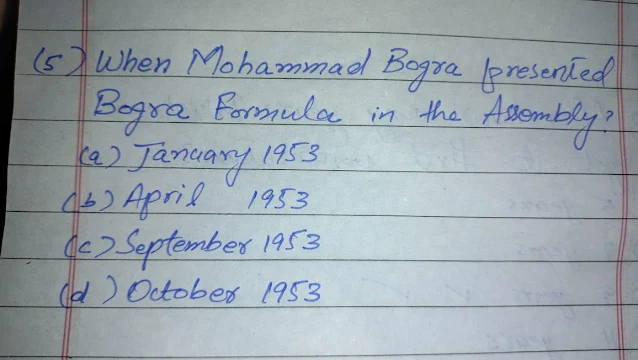 (5) When Mohammad Bogra presented
Bogra Formula in the Assembly?
(a) January 1953
(b) April 1953
(c) September 1953
(d) October 1953